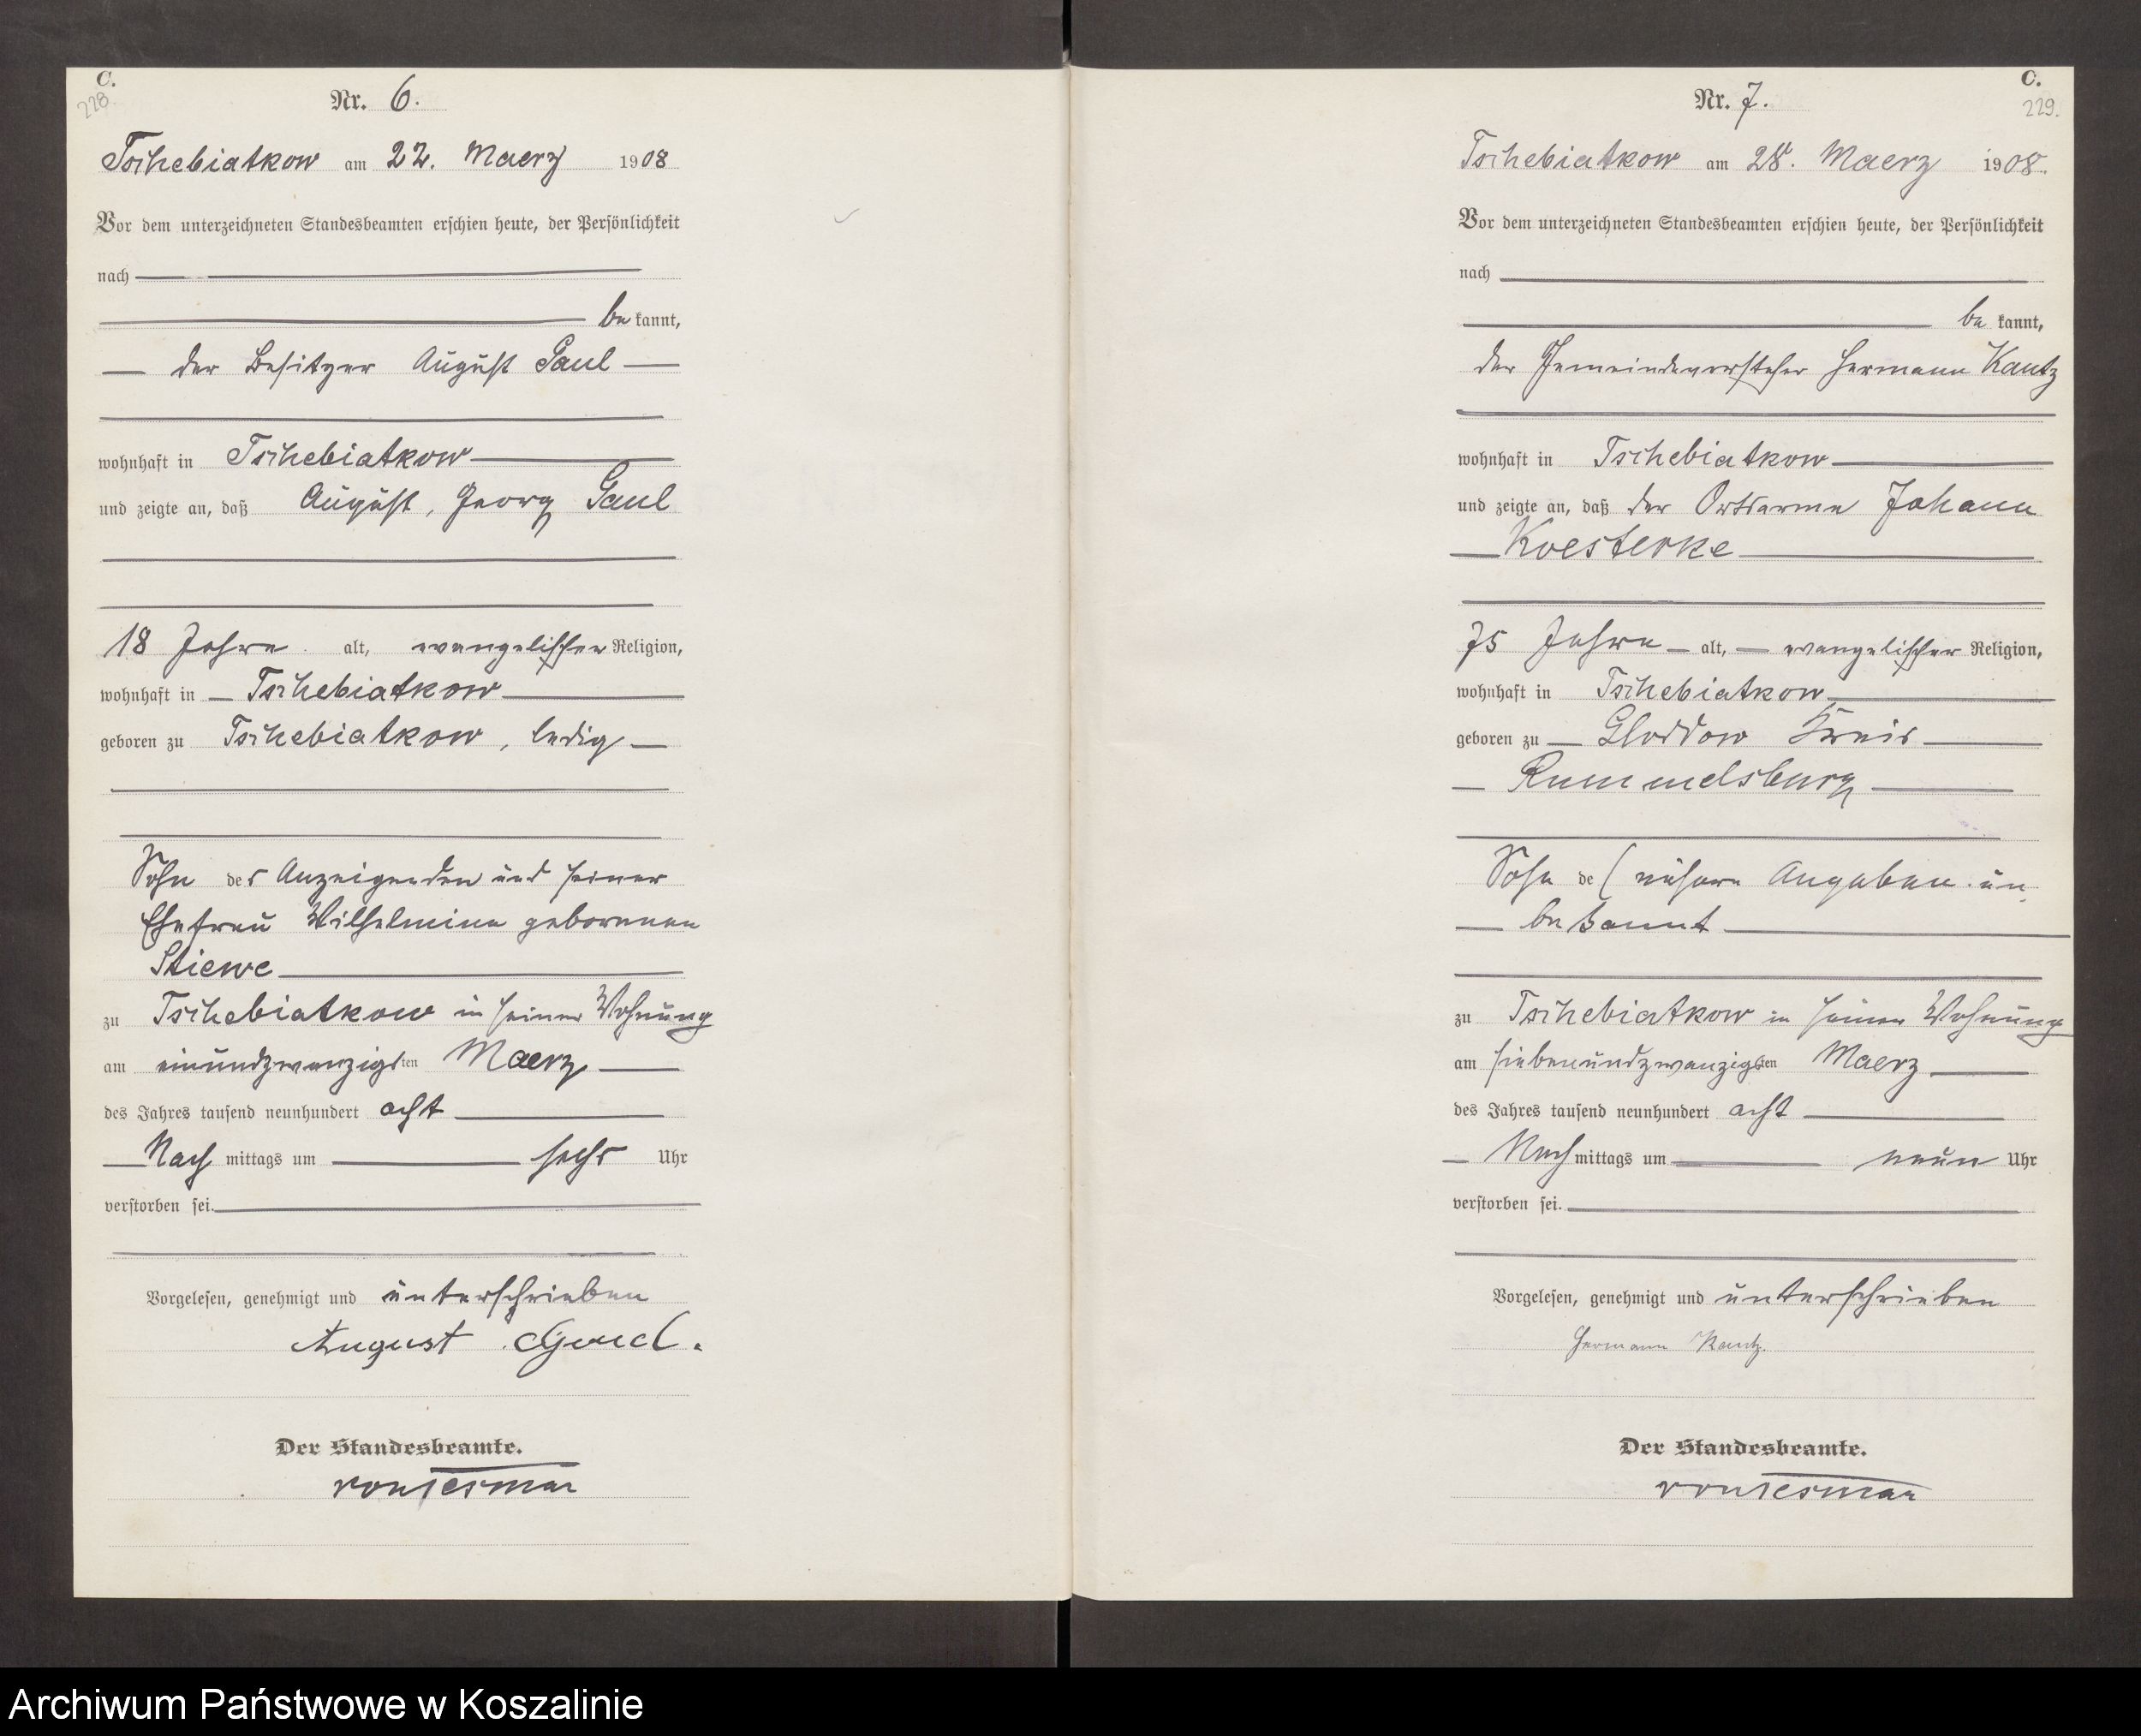 C.
228.
Nr. 6.
Tschebiatkow am 22. Maerz 1908
Vor dem unterzeichneten Standesbeamten erschien heute, der Persönlichkeit
nach
be kannt,
der Besitzer August Gaul
wohnhaft in Tschebiatkow
und zeigte an, daß August, Georg Gaul
18 Jahre alt, evangelischer Religion,
wohnhaft in Tschebiatkow
geboren zu Tschebiatkow, ledig
Sohn des Anzeigenden und seiner
Ehefrau Wilhelmine geborenen
Stiewe
zu Tschebiatkow in seiner Wohnung
am einundzwanzigsten Maerz
des Jahres tausend neunhundert acht
Nach mittags um sechs Uhr
verstorben sei.
Vorgelesen, genehmigt und unterschrieben
August Gaul.
Der Standesbeamte.
C.
229.
Nr. 7.
Tschebiatkow am 28. Maerz 1908.
Vor dem unterzeichneten Standesbeamten erschien heute, der Persönlichkeit
nach
be kannt,
der Gemeindevorsteher Hermann Kautz
wohnhaft in Tschebiatkow
und zeigte an, daß der Ortsarme Johann
Koesterke
75 Jahre alt, evangelischer Religion,
wohnhaft in Tschebiatkow
geboren zu Gloddow Kreis
Rummelsburg
Sohn de (nähere Angaben un
bekannt
zu Tschebiatkow in seiner Wohnung
am siebenundzwanzigsten Maerz
des Jahres tausend neunhundert acht
Nach mittags um neun Uhr
verstorben sei.
Vorgelesen, genehmigt und unterschrieben
Hermann Kautz.
Der Standesbeamte.
Archiwum Państwowe w Koszalinie